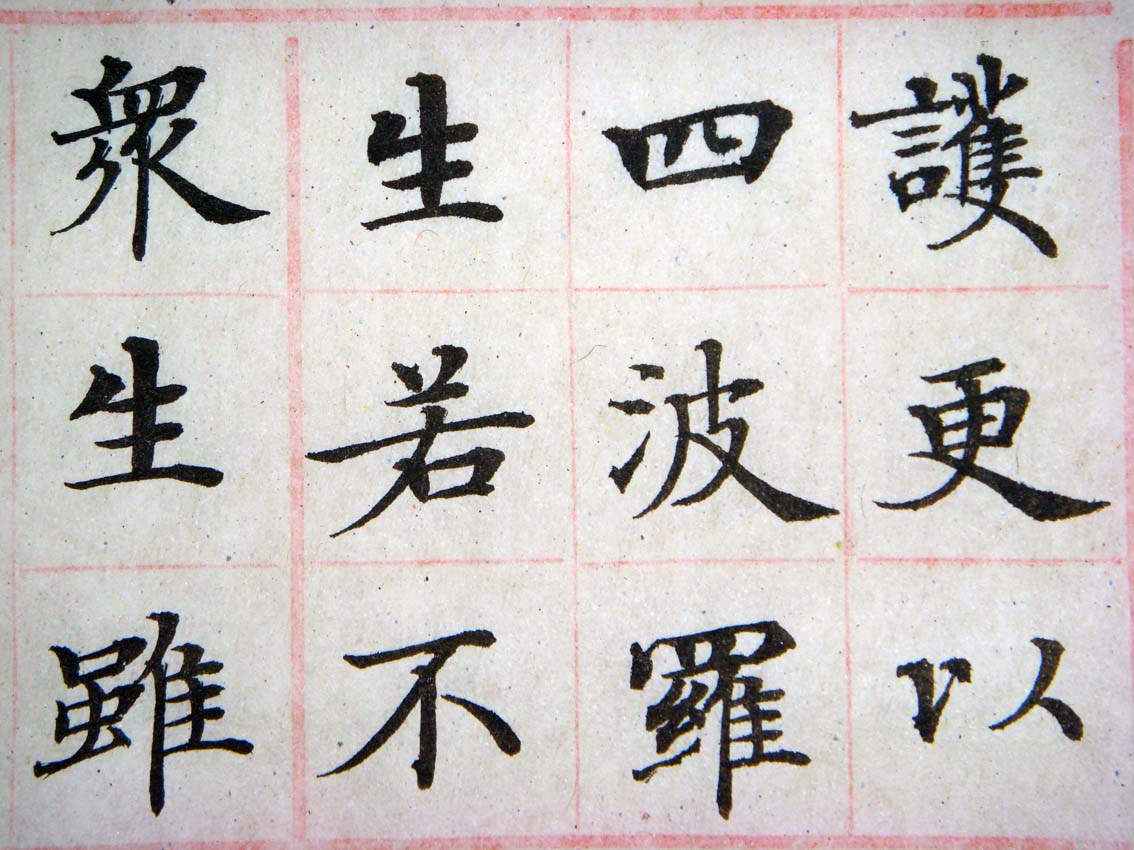 護更以
四波羅
生若不
衆生雖